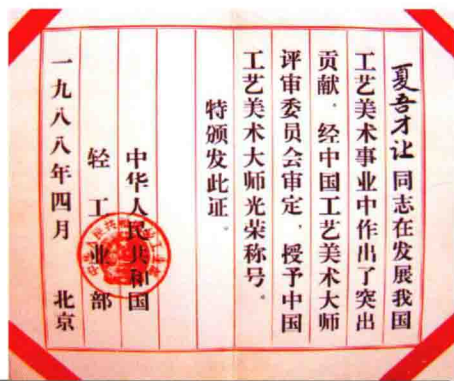 夏吾才让同志在发展我国
工艺美术事业中作出了突出
贡献．经中国工艺美术大师
评审委员会审定，授予中国
工艺美术大师光荣称号。
特颁发此证。
中华人民共和国
轻工业部
一九八八年四月　北京